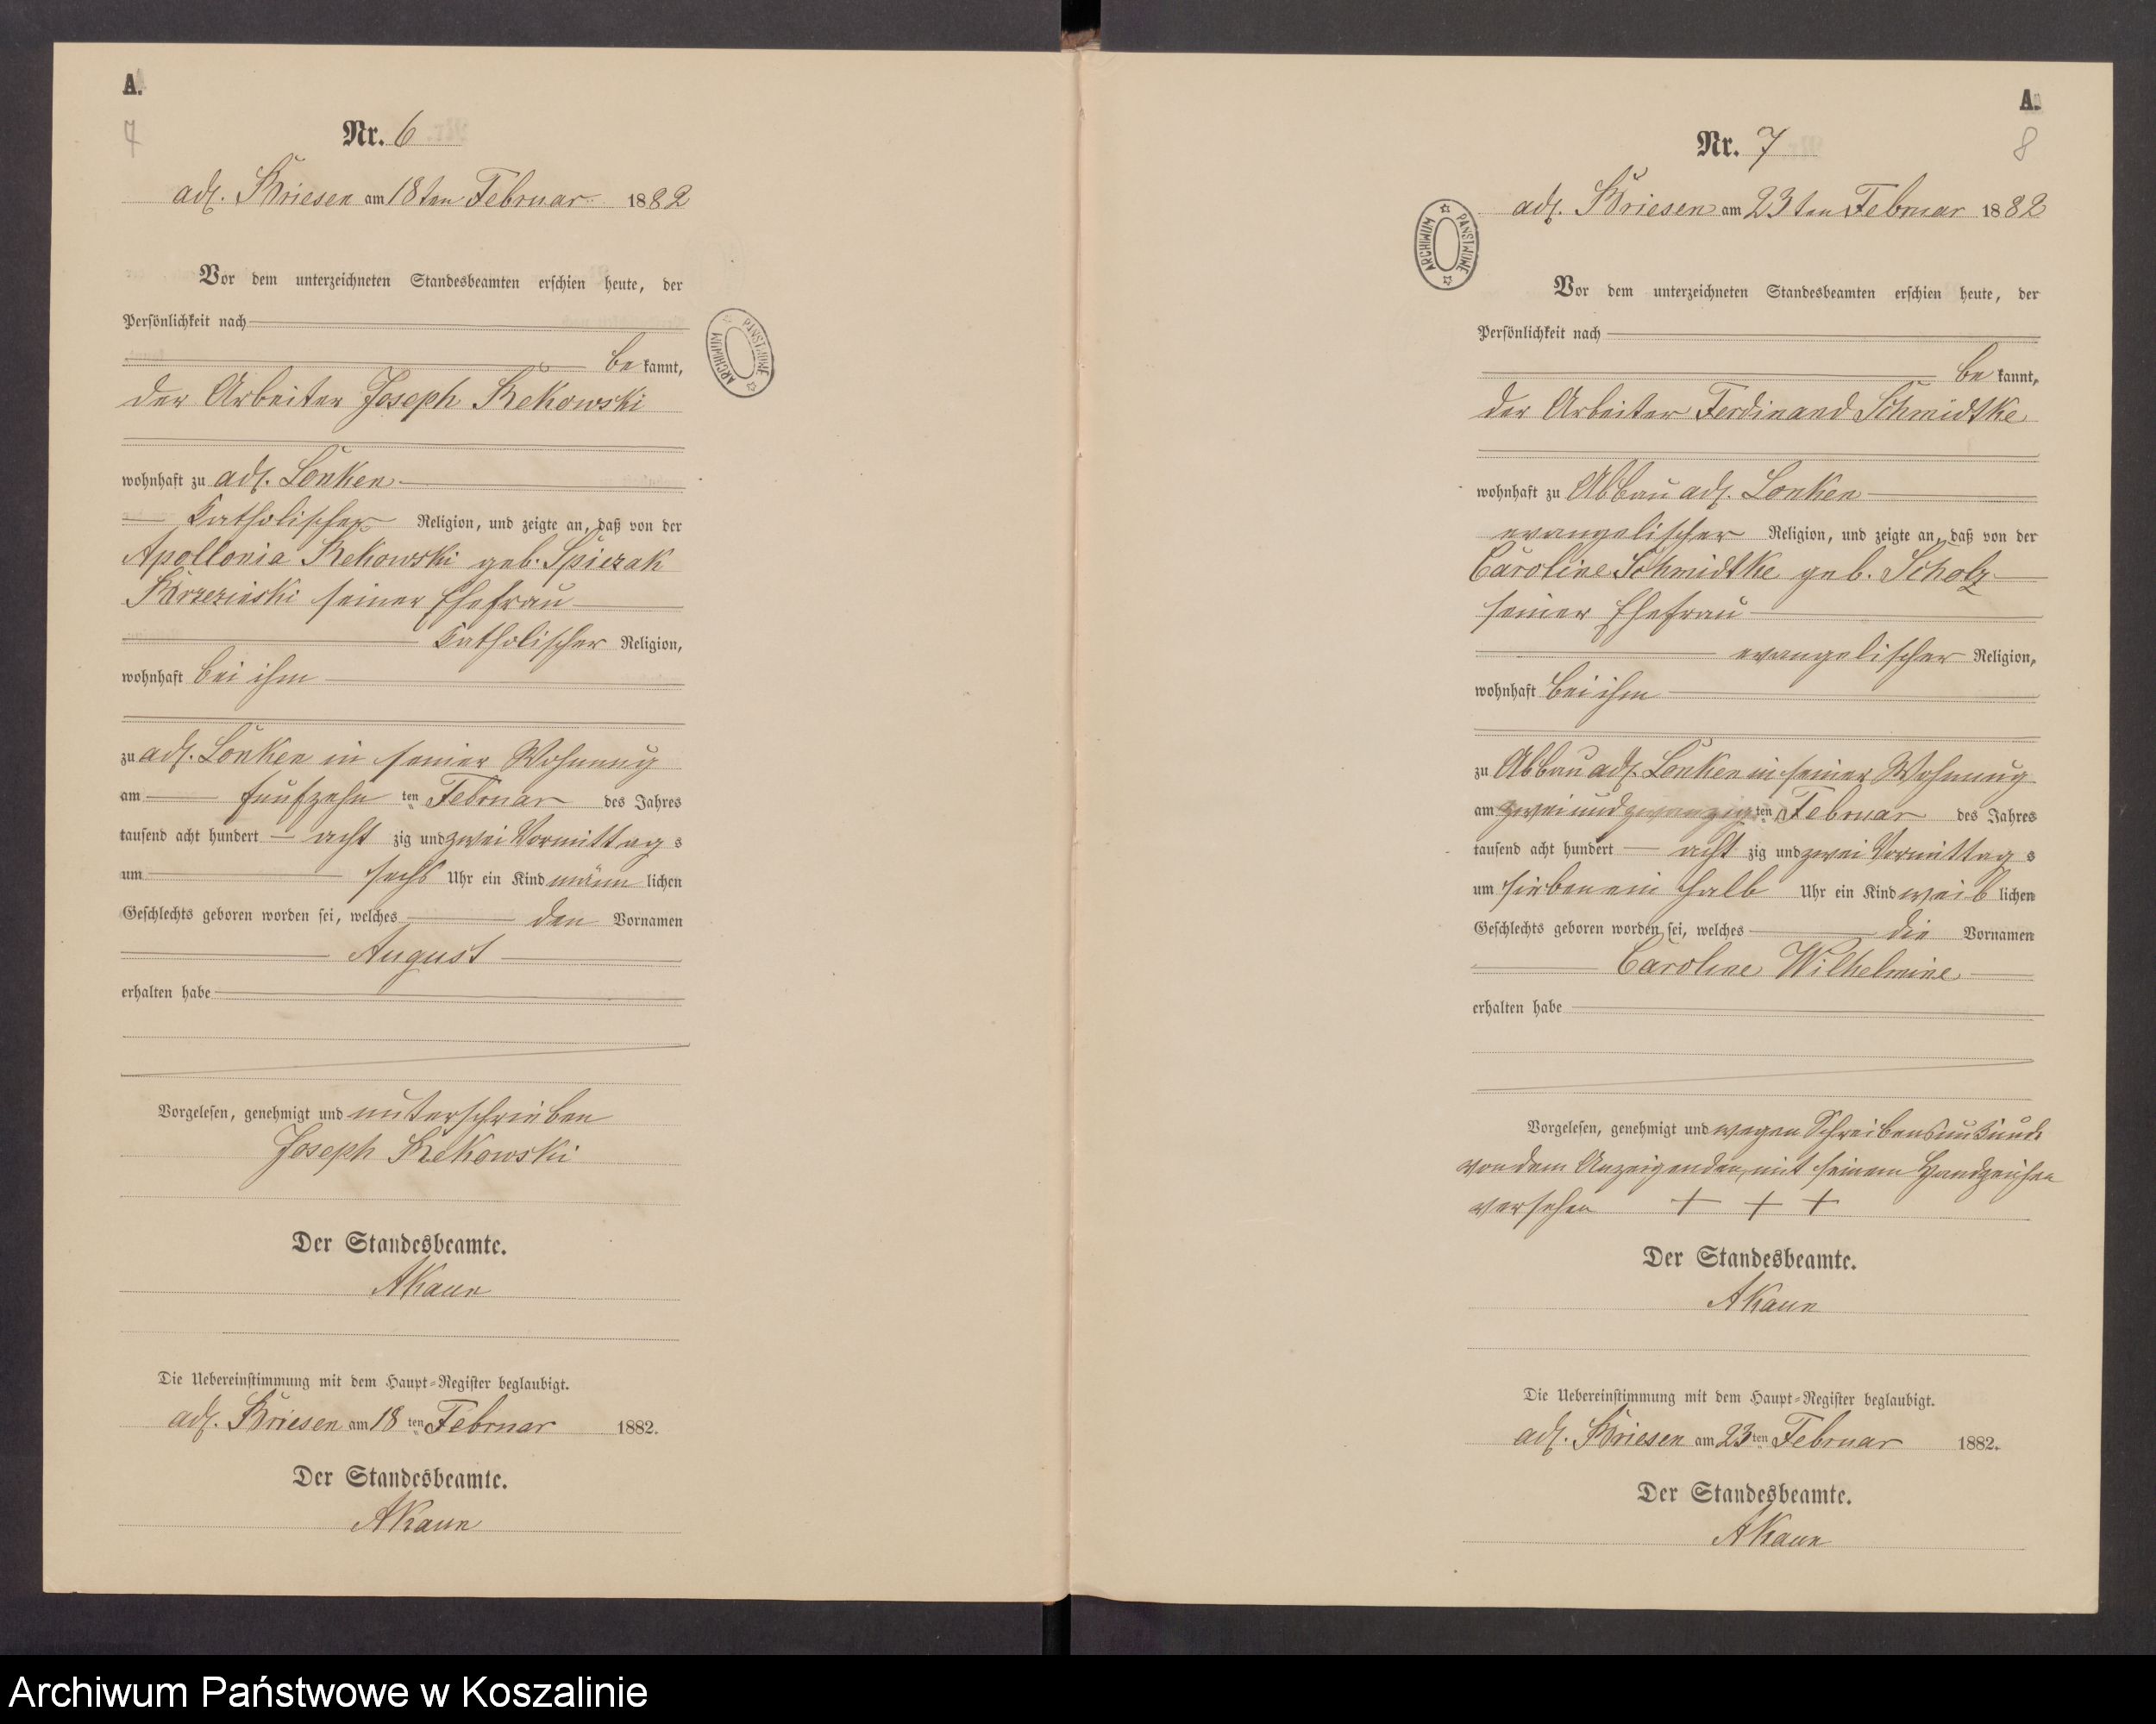 A.
7
Nr. 6
adl. Briesen am 18ten Februar 1882
Vor dem unterzeichneten Standesbeamten erschien heute, der
Persönlichkeit nach
be kannt,
der Arbeiter Joseph Rekowski
wohnhaft zu adl. Lonken
Katholischer Religion, und zeigte an, daß von der
Apollonia Rekowski geb. Spiczak
Brzezinski seiner Ehefrau
Katholischer Religion,
wohnhaft bei ihm
zu adl. Lonken in seiner Wohnung
am fünfzehn ten Februar des Jahres
tausend acht hundert acht zig und zwei Vormittag s
um sechs Uhr ein Kind männ lichen
Geschlechts geboren worden sei, welches den Vornamen
August
erhalten habe
Vorgelesen, genehmigt und unterschrieben
Joseph Rekowski
Der Standesbeamte.
AKaun
Die Uebereinstimmung mit dem Haupt-Register beglaubigt.
adl. Briesen am 18 ten Februar 1882.
Der Standesbeamte.
AKaun
ARCHIWUM PAŃSTWOWE
A.
8
Nr. 7
adl. Briesen am 23ten Februar 1882
ARCHIWUM PAŃSTWOWE
Vor dem unterzeichneten Standesbeamten erschien heute, der
Persönlichkeit nach
be kannt,
der Arbeiter Ferdinand Schmidtke
wohnhaft zu Abbau adl. Lonken
evangelischer Religion, und zeigte an, daß von der
Caroline Schmidtke geb. Scholz
seiner Ehefrau
evangelischer Religion,
wohnhaft bei ihm
zu Abbau adl. Lonken in seiner Wohnung
am zweiundzwanzig ten Februar des Jahres
tausend acht hundert acht zig und zwei Vormittag s
um sieben ein halb Uhr ein Kind weib lichen
Geschlechts geboren worden sei, welches die Vornamen
Caroline Wilhelmine
erhalten habe
Vorgelesen, genehmigt und wegen Schreibensunkunde
von dem Anzeigenden mit seinem Handzeichen
versehen + + +
Der Standesbeamte.
AKaun
Die Uebereinstimmung mit dem Haupt-Register beglaubigt.
adl. Briesen am 23 ten Februar 1882.
Der Standesbeamte.
AKaun
Archiwum Państwowe w Koszalinie